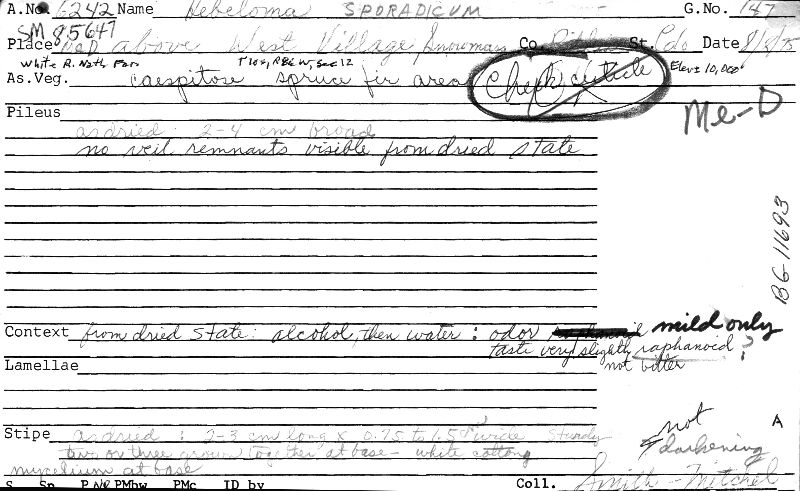 A.No. 6242 Name Hebeloma SPORADICUM G.No. 147
SM 85647
Place above West Village Snowmass Co. Pitkin St. Colo Date 8/8/75
White R. Natn For T10S, R86W, Sec 12 Elev ± 10,000'
As.Veg. caespitose spruce fir area Check cuticle
Me-D
Pileus
as dried: 2-4 cm broad
no veil remnants visible from dried state
BG 11693
Context from dried state: alcohol, then water: odor mild only
taste very slightly raphanoid ?
not bitter
Lamellae
not darkening
A
Stipe as dried: 2-3 cm long x 0.75 to 1.5 wide Sturdy
two or three grown together at base - white cottony
mycelium at base
S. Sp. P No PMbw PMc ID by Coll. Smith-Mitchel